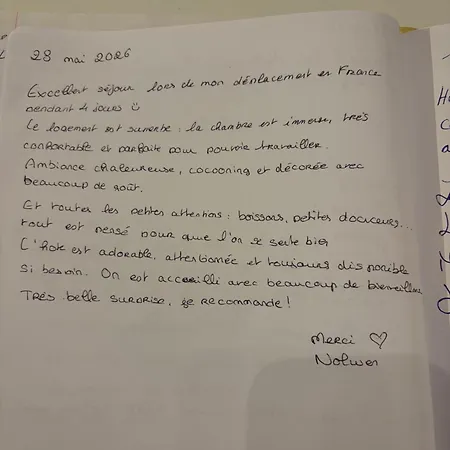 28 mai 2026
Excellent séjour lors de mon déplacement en France
pendant 4 jours
Le logement est superbe : la chambre est immense, très
confortable et parfaite pour pouvoir travailler.
Ambiance chaleureuse, cocooning et décorée avec
beaucoup de goût.
Et toutes les petites attentions : boissons, petites douceurs...
tout est pensé pour que l'on se sente bien
L'hôte est adorable, attentionnée et toujours disponible
si besoin. On est accueilli avec beaucoup de bienveillance
Très belle surprise, je recommande !
Merci ♡
Nolwen